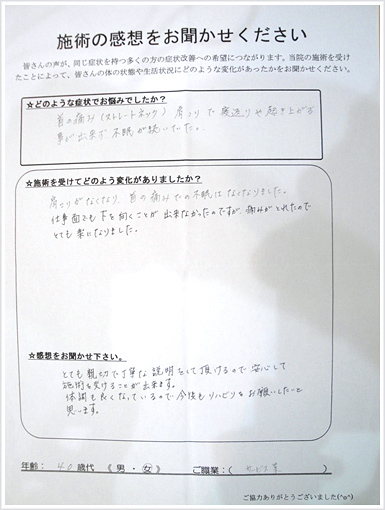 施術の感想をお聞かせください
皆さんの声が、同じ症状を持つ多くの方の症状改善への希望につながります。当院の施術を受け
たことによって、皆さんの体の状態や生活状況にどのような変化があったかをお聞かせください。
☆どのような症状でお悩みでしたか？
首の痛み（ストレートネック）肩こりで寝返りや起き上がる
事が出来ず不眠が続いていた。
☆施術を受けてどのよう変化がありましたか？
肩こりがなくなり、首の痛みでの不眠はなくなりました。
仕事面でも下を向くことが出来なかったのですが、痛みがとれたので
とても楽になりました。
☆感想をお聞かせ下さい。
とても親切で丁寧な説明をして頂けるので安心して
施術を受けることが出来ます。
体調も良くなっているので今後もリハビリをお願いしたいと
思います。
年齢： 40 歳代 《 男 ・ 女 》 ご職業：（ サービス業 ）
ご協力ありがとうございました(^o^)